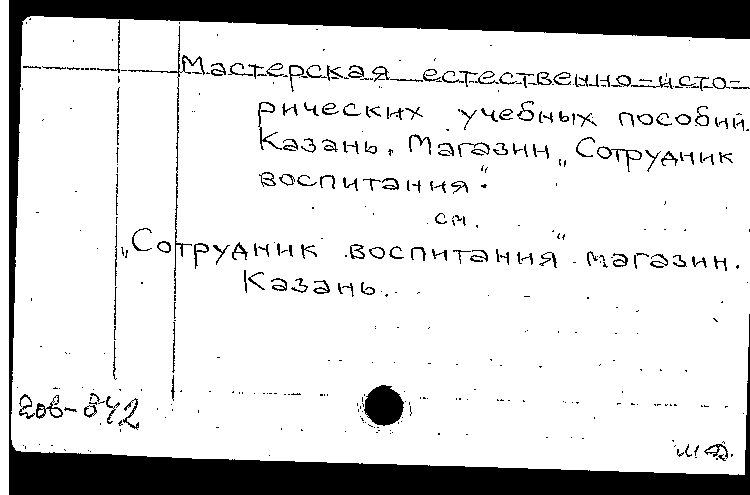 Мастерская естественно-исто-
рических учебных пособий.
Казань. Магазин „Сотрудник
воспитания“.
см.
„Сотрудник воспитания“ магазин.
Казань.